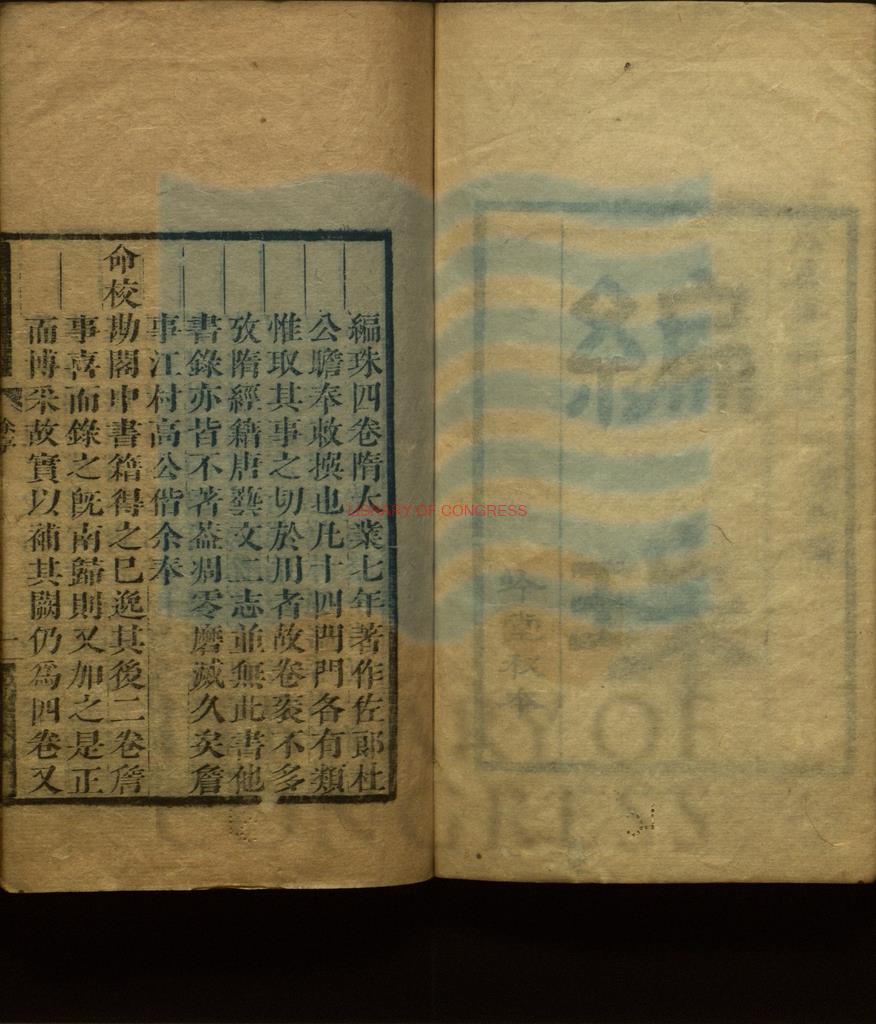 編珠四卷隋大業七年著作佐郞杜
公瞻奉敕撰也凡十四門門各有類
惟取其事之切於用者故卷袠不多
攷隋經籍唐藝文二志並無此書他
書錄亦皆不著葢凋零磨滅久矣詹
事江村高公偕余奉
命校勘閣中書籍得之已逸其後二卷詹
事喜而錄之旣南歸則又加之是正
而博采故實以補其闕仍爲四卷又
徐序
一
LIBRARY OF CONGRESS